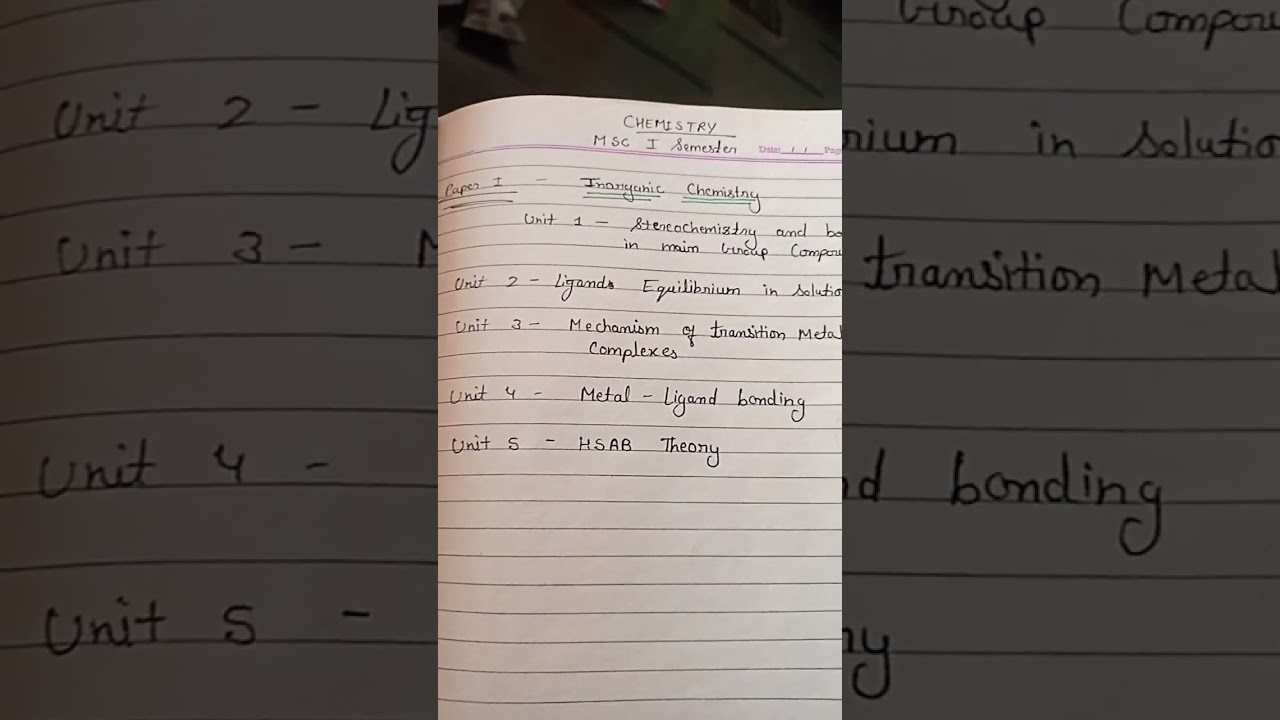 CHEMISTRY
MSC I Semester Date
Paper I - Inorganic Chemistry
Unit 1 - Stereochemistry and bo
in main Group Compou
Unit 2 - Ligands Equilibrium in solutio
Unit 3 - Mechanism of transition Metal
Complexes
Unit 4 - Metal - Ligand bonding
Unit 5 - HSAB Theory
Unit 2 - Lig
Unit 3 - M
Unit 4 -
Unit 5 -
Group Compou
rium in solutio
transition Metal
nd bonding
ry